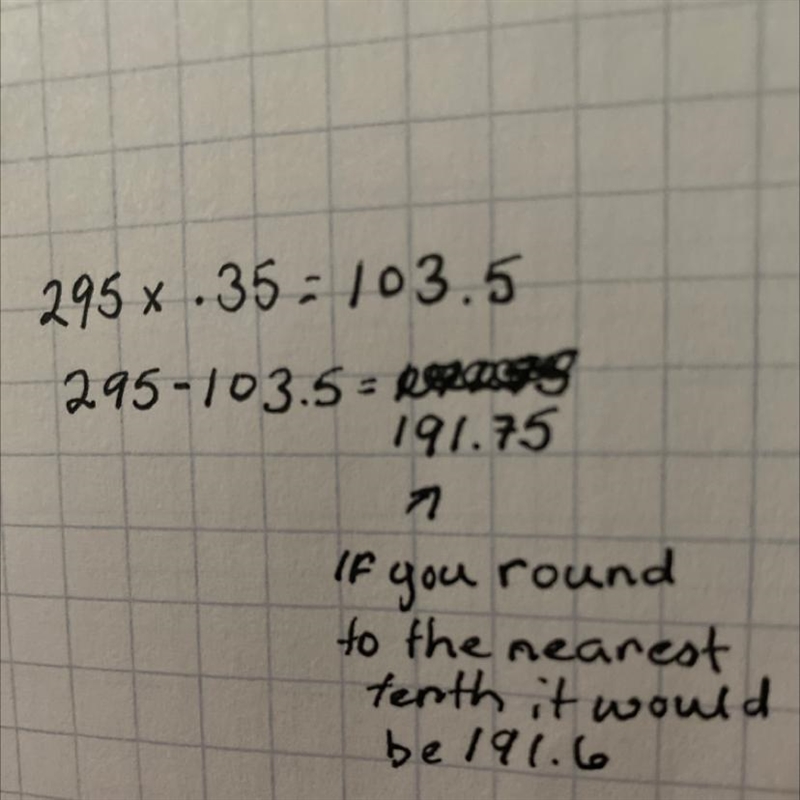 295 x .35 = 103.5
295 - 103.5 =
191.75
↗
IF you round
to the nearest
tenth it would
be 191.6